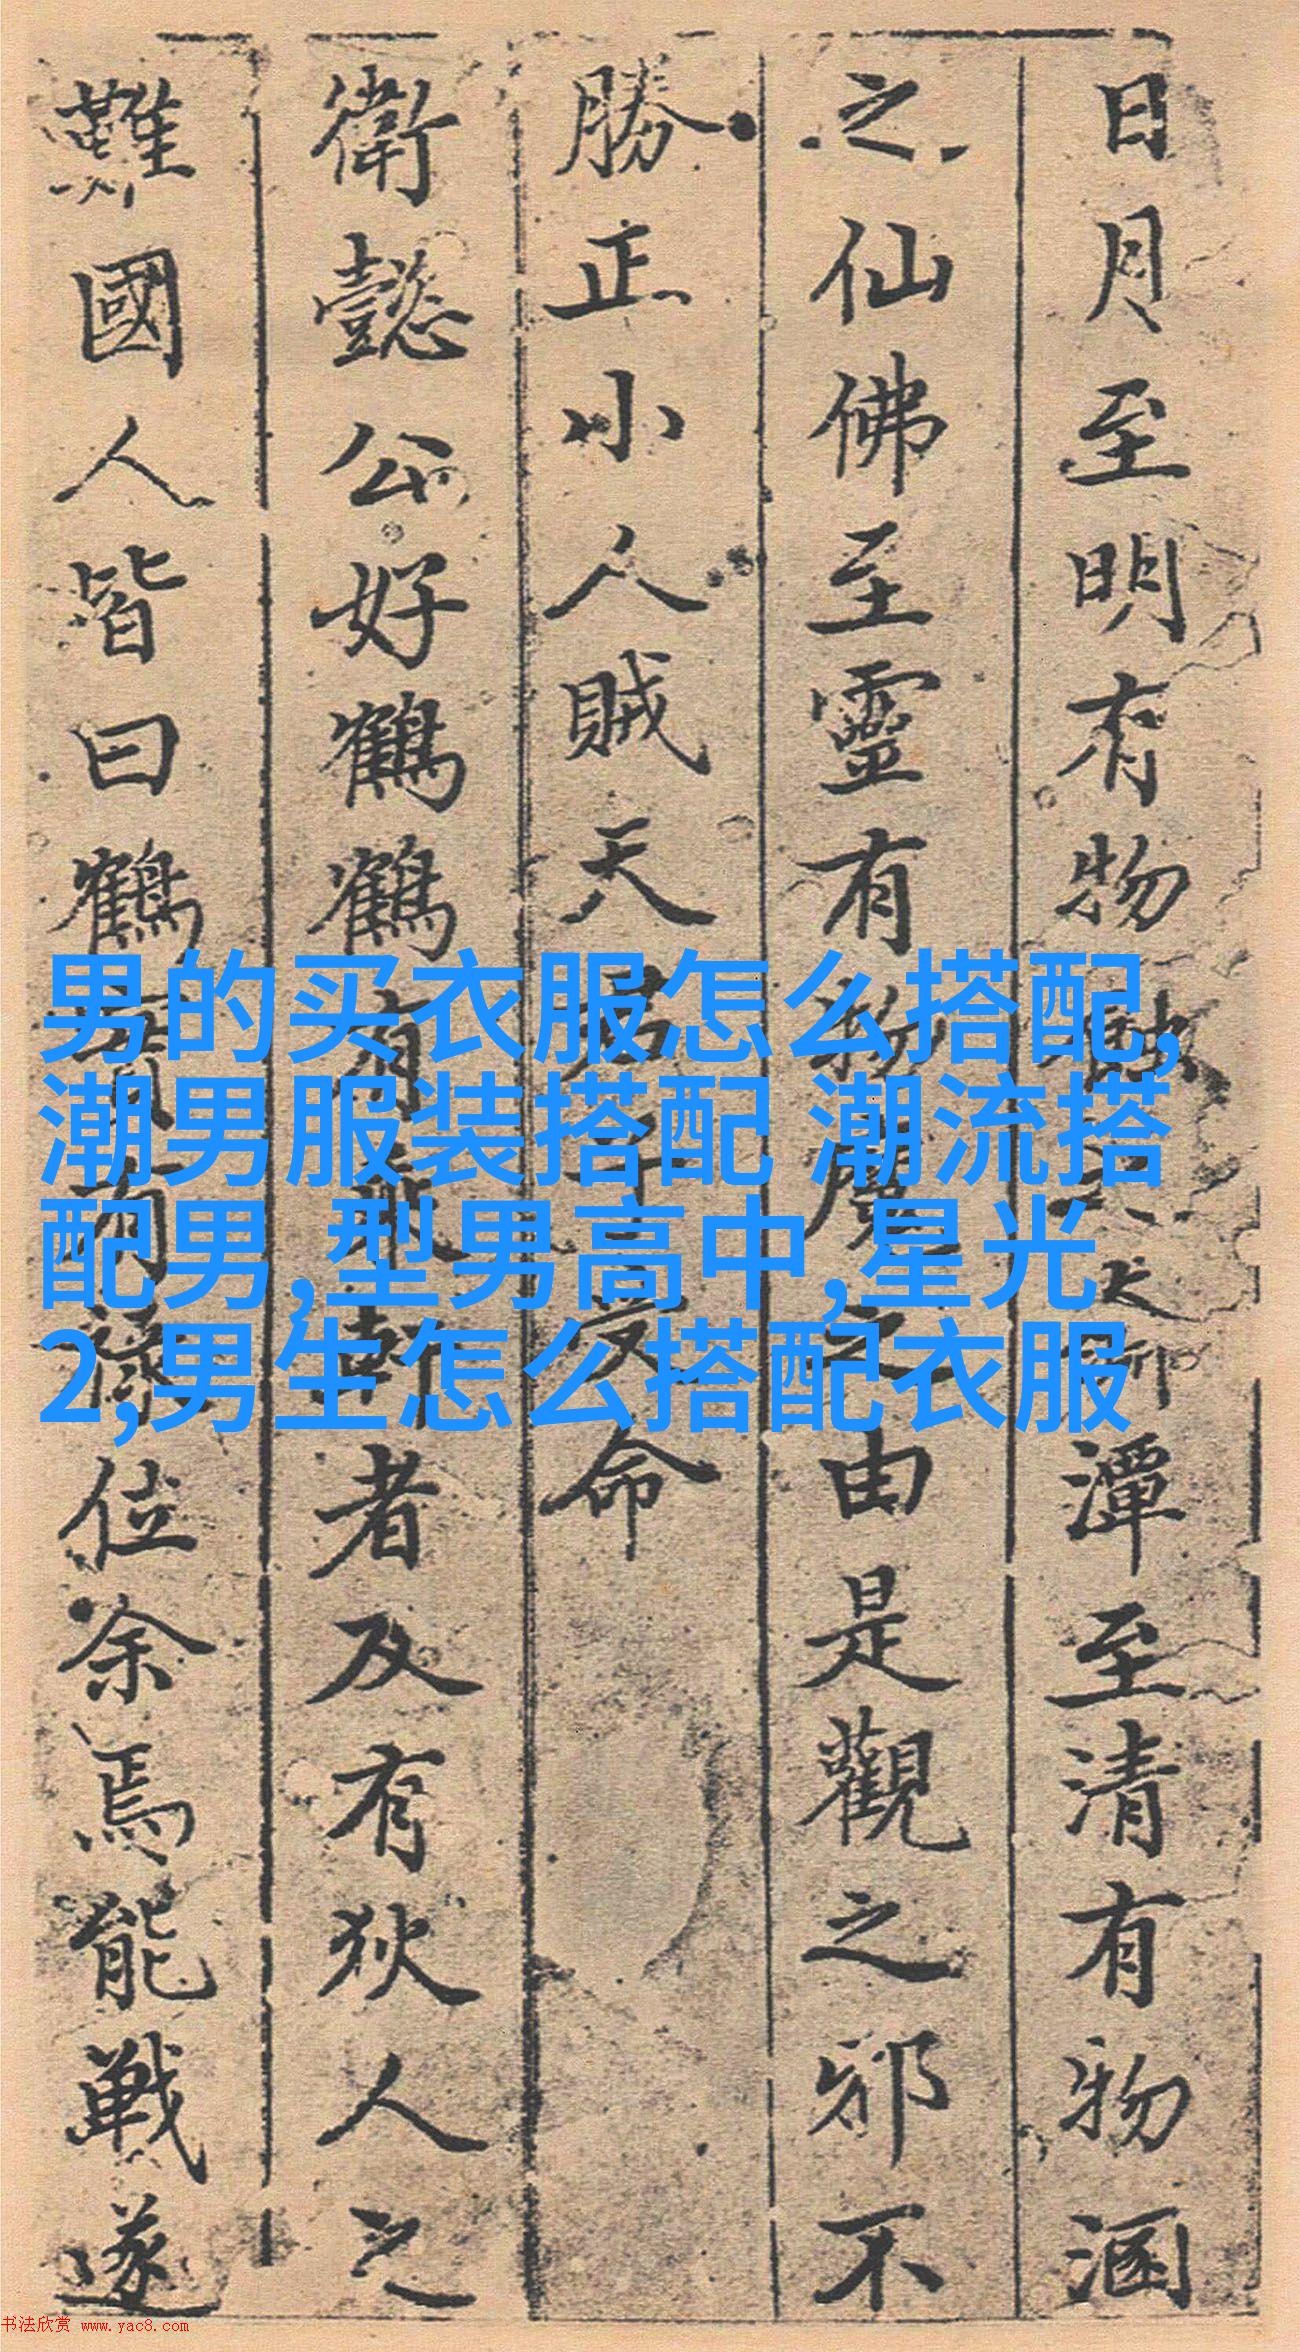 日月至明有物蝕之 潭至清有物涵
之仙佛至靈有物魔之由是觀之邪不
勝正小人賊天君子受命
衛懿公好鶴鶴有乘軒者及有狄人之
難國人皆曰鶴實有祿位余焉能戰遂
男的买衣服怎么搭配,
潮男服装搭配 潮流搭
配男,型男高中,星光
2,男生怎么搭配衣服
书法欣赏 www.yac8.com